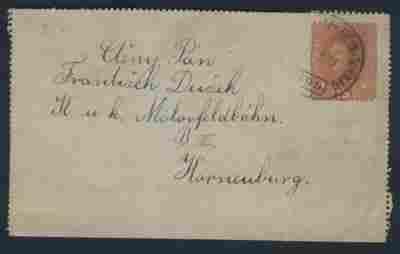 Ctěný Pán
František Dušek
K. u k. Motorfeldbahn.
B
Korneuburg.